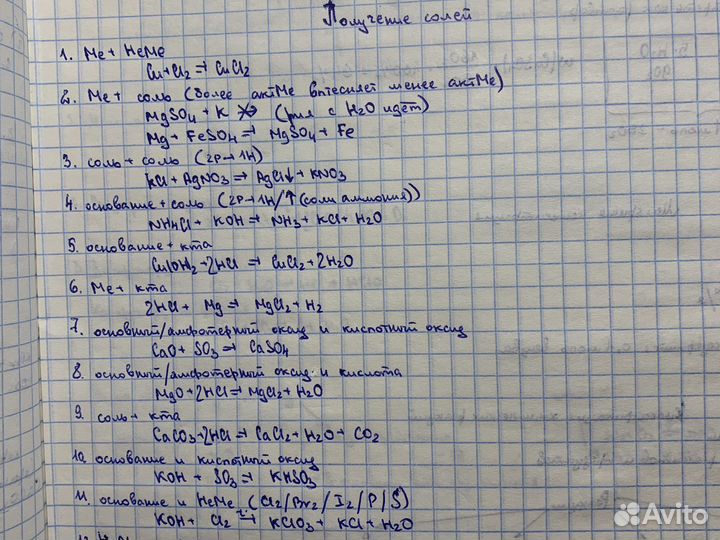 Получение солей
1. Me + неМе
Cu+Cl2 ⇒ CuCl2
2. Me + соль (более актМе вытесняет менее актМе)
MgSO4 + K ⇏ (т.к. с H2O идёт)
Mg + FeSO4 ⇒ MgSO4 + Fe
3. соль + соль (2р→1н)
KCl + AgNO3 ⇒ AgCl↓ + KNO3
4. основание + соль (2р→1н/↑(соли аммония))
NH4Cl + KOH ⇒ NH3 + KCl + H2O
5. основание + к-та
Cu(OH)2 + 2HCl ⇒ CuCl2 + 2H2O
6. Me + к-та
2HCl + Mg ⇒ MgCl2 + H2
7. основный/амфотерный оксид и кислотный оксид
CaO + SO3 ⇒ CaSO4
8. основный/амфотерный оксид и кислота
MgO + 2HCl ⇒ MgCl2 + H2O
9. соль + к-та
CaCO3 + 2HCl ⇒ CaCl2 + H2O + CO2
10. основание и кислотный оксид
KOH + SO3 ⇒ KHSO3
11. основание и неМе (Cl2/Br2/I2/P/S)
KOH + Cl2 ⇒ KClO3 + KCl + H2O
Avito